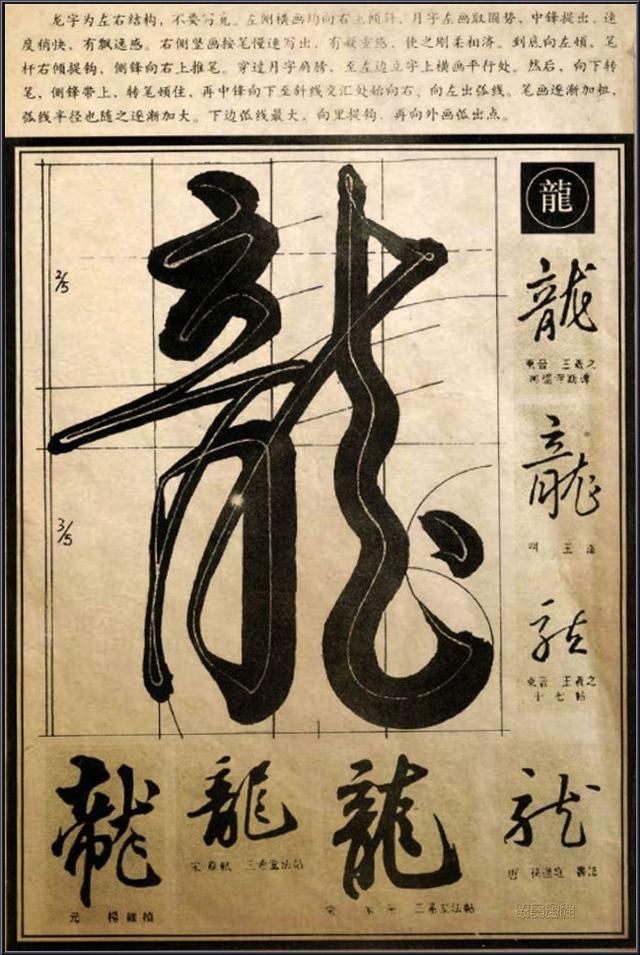 龙字为左右结构，不要写宽。左侧横画均向右上倾斜，月字左画取圆势，中锋提出，速
度稍快，有飘逸感。右侧竖画按笔慢速写出，有凝重感，使之刚柔相济。到底向左顿，笔
杆右倾提钩，侧锋向右上推笔。穿过月字肩膀，至左边立字上横画平行处。然后，向下转
笔、侧锋带上，转笔顿住，再中锋向下至斜线交汇处始向右、向左出弧线。笔画逐渐加粗，
弧线半径也随之逐渐加大。下边弧线最大，向里提钩，再向外画弧出点。
龍
2/5
3/5
龍
龍
東晋 王羲之
龍
明 王
龍
東晋 王羲之
十七帖
龍
元 楊維禎
龍
宋 三希堂法帖
龍
宋 三希堂法帖
龍
唐 孫過庭 書譜